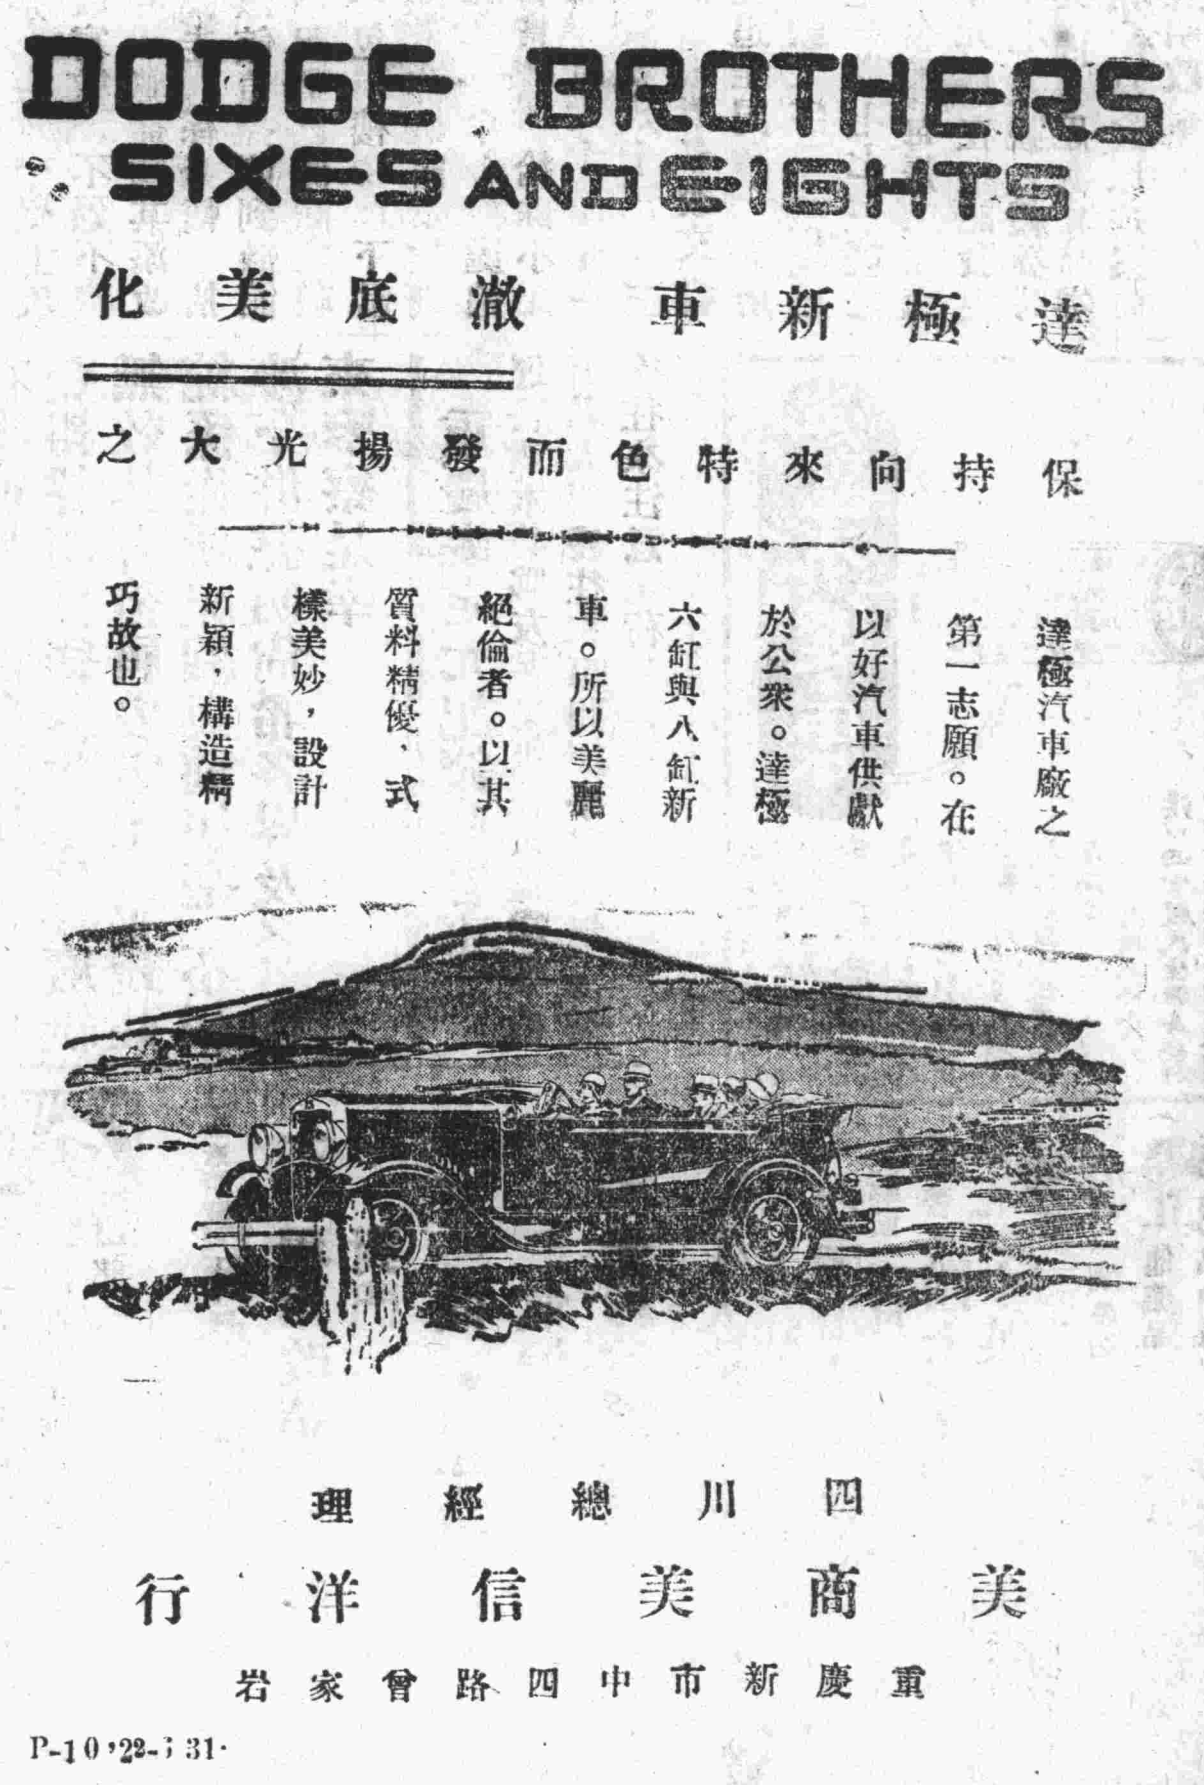 DODGE BROTHERS
SIXES AND EIGHTS
達極新車 澈底美化
保持向來特色而發揚光大之
達極汽車廠之
第一志願。在
以好汽車供獻
於公衆。達極
六缸與八缸新
車。所以美麗
絕倫者。以其
質料精優、式
樣美妙，設計
新穎，構造精
巧故也。
四川總經理
美商美信洋行
重慶新市中四路曾家岩
P-10,22- 31.